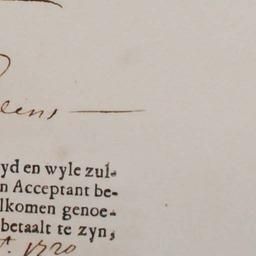 yd en wyle zul-
n Acceptant be-
lkomen genoe-
betaalt te zyn,
1720